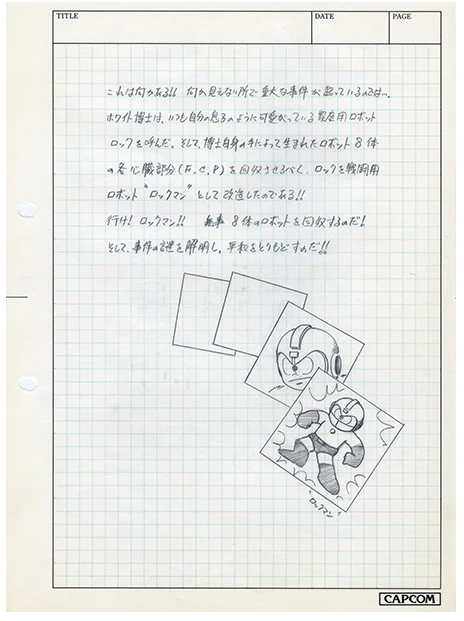 TITLE
DATE
PAGE
これは何かある!! 何か見えない所で重大な事件が起っているのでは…。
ホワイト博士は、いつも自分の息子のように可愛がっている家庭用ロボット
ロックを呼んだ。そして、博士自身の手によって生まれたロボット8体
の各心臓部分(F.C.P)を回収させるべく、ロックを戦闘用
ロボット"ロックマン"として改造したのである!!
行け!ロックマン!! 無事8体のロボットを回収するのだ!
そして、事件の謎を解明し、平和をとりもどすのだ!!
"ロックマン"
CAPCOM